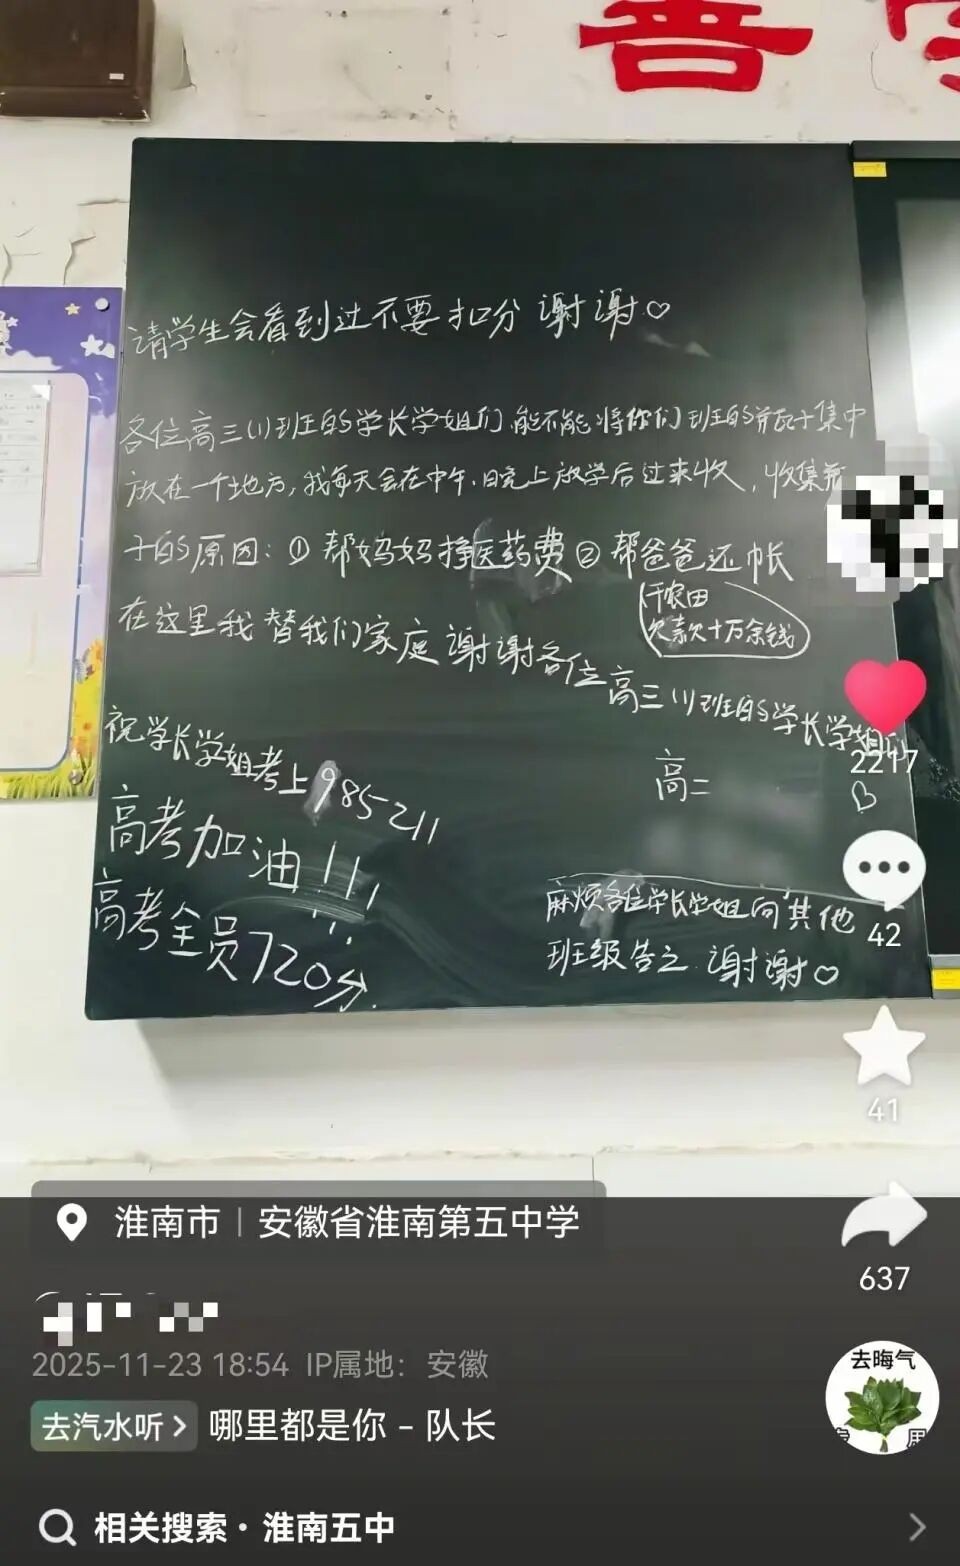 请学生会看到过不要扣分 谢谢♡
各位高三(1)班的学长学姐们,能不能将你们班的瓶子集中
放在一个地方,我每天会在中午、晚上放学后过来收,收集瓶
子的原因:① 帮妈妈挣医药费② 帮爸爸还帐
干农田
欠款欠十万余钱
在这里我替我们家庭谢谢各位高三(1)班的学长学姐们
高二
祝学长学姐考上985211
高考加油!!!
高考全员720分.
麻烦各位学长学姐向其他
班级告之.谢谢♡
2217
42
41
637
淮南市 | 安徽省淮南第五中学
2025-11-23 18:54 IP属地:安徽
去晦气
去汽水听 > 哪里都是你 - 队长
相关搜索 · 淮南五中